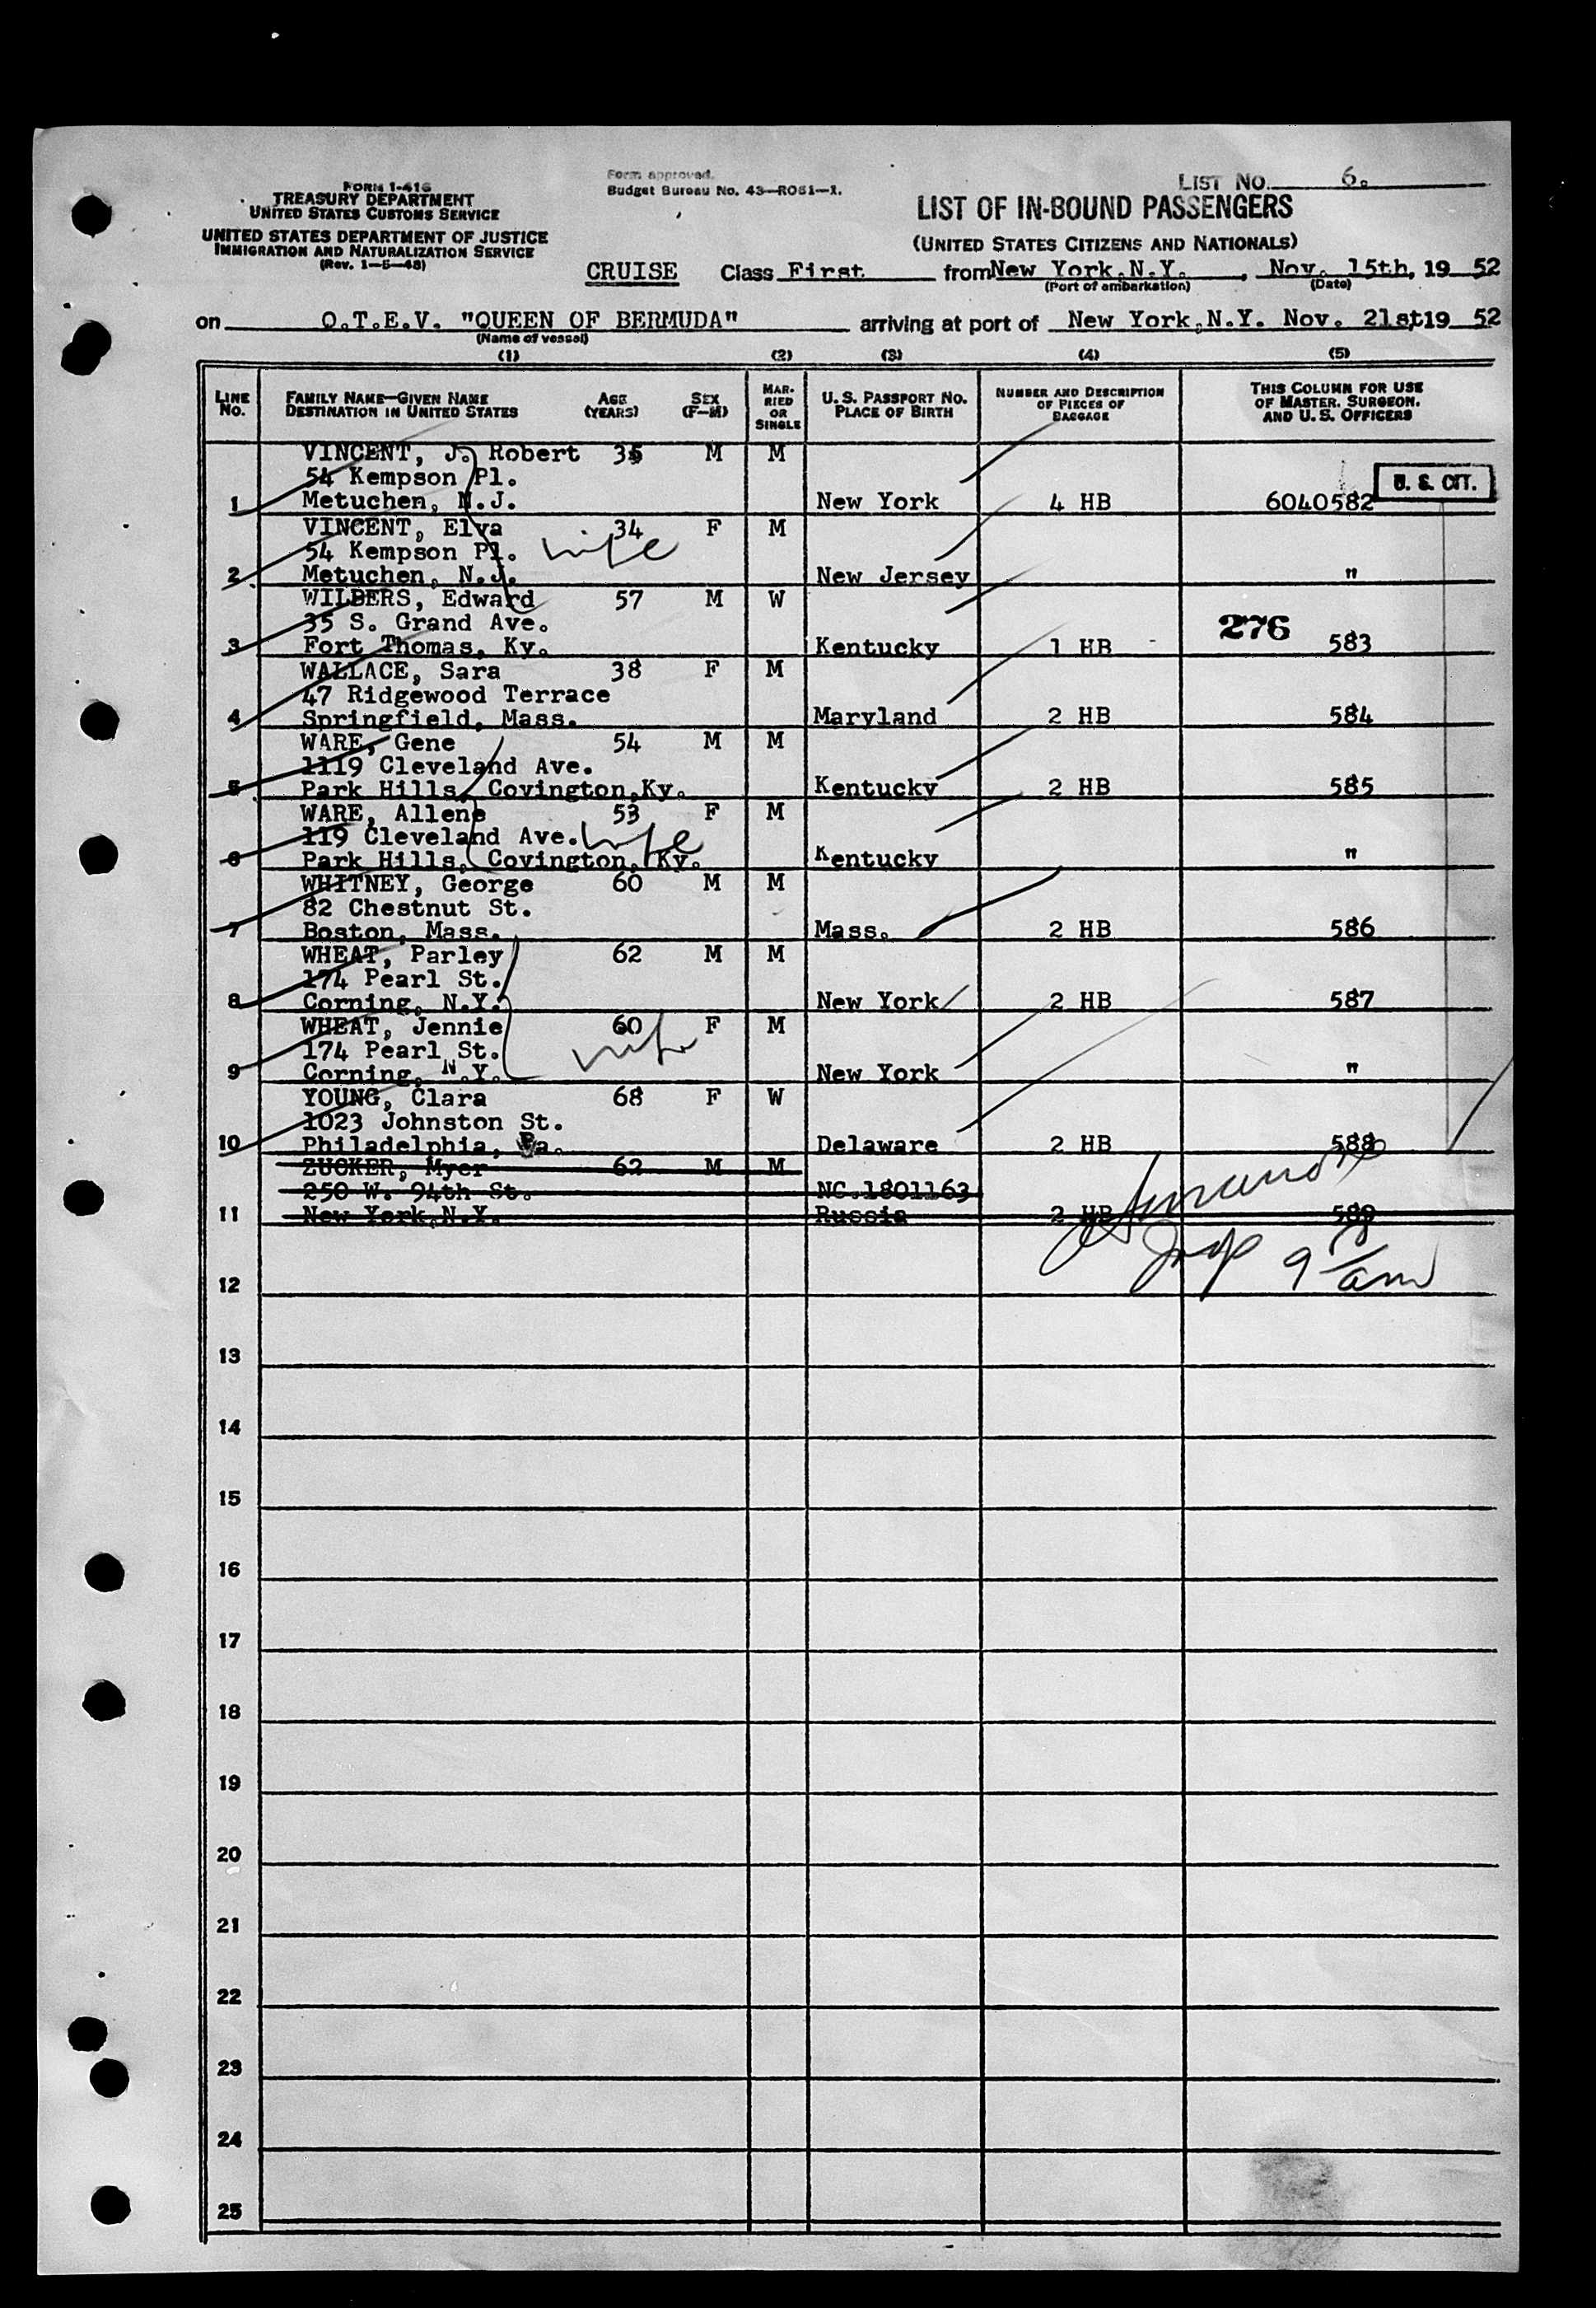 FORM I-415
TREASURY DEPARTMENT
UNITED STATES CUSTOMS SERVICE
UNITED STATES DEPARTMENT OF JUSTICE
IMMIGRATION AND NATURALIZATION SERVICE
(Rev. 1-5-48)
Form approved.
Budget Bureau No. 43-R051-1.
LIST NO. 6.
LIST OF IN-BOUND PASSENGERS
(UNITED STATES CITIZENS AND NATIONALS)
CRUISE Class First from New York,N.Y., Nov. 15th, 19 52
(Port of embarkation) (Date)
on Q.T.E.V. "QUEEN OF BERMUDA" arriving at port of New York,N.Y. Nov. 21st, 19 52
(Name of vessel)
(1) (2) (3) (4) (5)
LINE NO. FAMILY NAME—GIVEN NAME DESTINATION IN UNITED STATES AGE (YEARS) SEX (F—M) MARRIED OR SINGLE U. S. PASSPORT NO. PLACE OF BIRTH NUMBER AND DESCRIPTION OF PIECES OF BAGGAGE THIS COLUMN FOR USE OF MASTER, SURGEON, AND U. S. OFFICERS
VINCENT, J. Robert 35 M M
54 Kempson Pl. U. S. CIT.
1 Metuchen, N.J. New York 4 HB 6040582
VINCENT, Elva 34 F M
54 Kempson Pl. wife
2 Metuchen, N.J. New Jersey "
WILBERS, Edward 57 M W
35 S. Grand Ave. 276
3 Fort Thomas, Ky. Kentucky 1 HB - 583
WALLACE, Sara 38 F M
47 Ridgewood Terrace
4 Springfield, Mass. Maryland 2 HB 584
WARE, Gene 54 M M
1119 Cleveland Ave.
5 Park Hills, Covington,Ky. Kentucky 2 HB 585
WARE, Allene 53 F M
119 Cleveland Ave. wife
6 Park Hills, Covington, Ky. Kentucky "
WHITNEY, George 60 M M
82 Chestnut St.
7 Boston, Mass. Mass. 2 HB 586
WHEAT, Parley 62 M M
174 Pearl St.
8 Corning, N.Y. New York 2 HB 587
WHEAT, Jennie 60 F M
174 Pearl St. wife
9 Corning, N.Y. New York "
YOUNG, Clara 68 F W
1023 Johnston St.
10 Philadelphia, Pa. Delaware 2 HB 588
ZUCKER, Myer 62 M M
250 W. 94th St. NC.1801163
11 New York,N.Y. Russia 2 HB 589
12
13
14
15
16
17
18
19
20
21
22
23
24
25